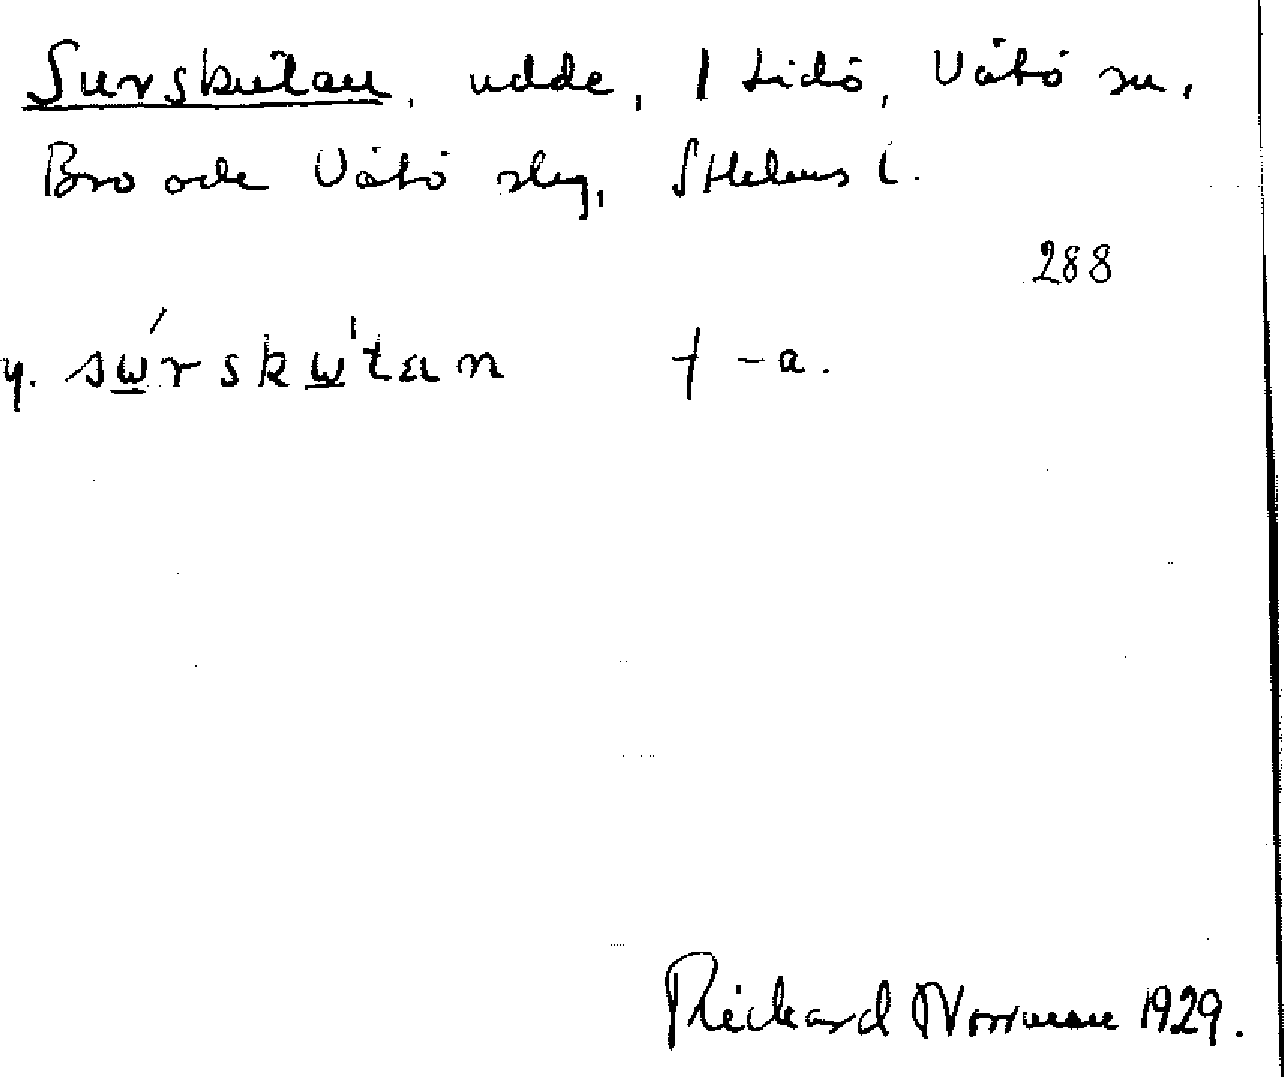 Surskutan, udde, 1 Lidö, Vätö sn,
Bro och Vätö slg, Sthlms l.
288
y. sωrskωtan f -a.
Rickard Norrman 1929.